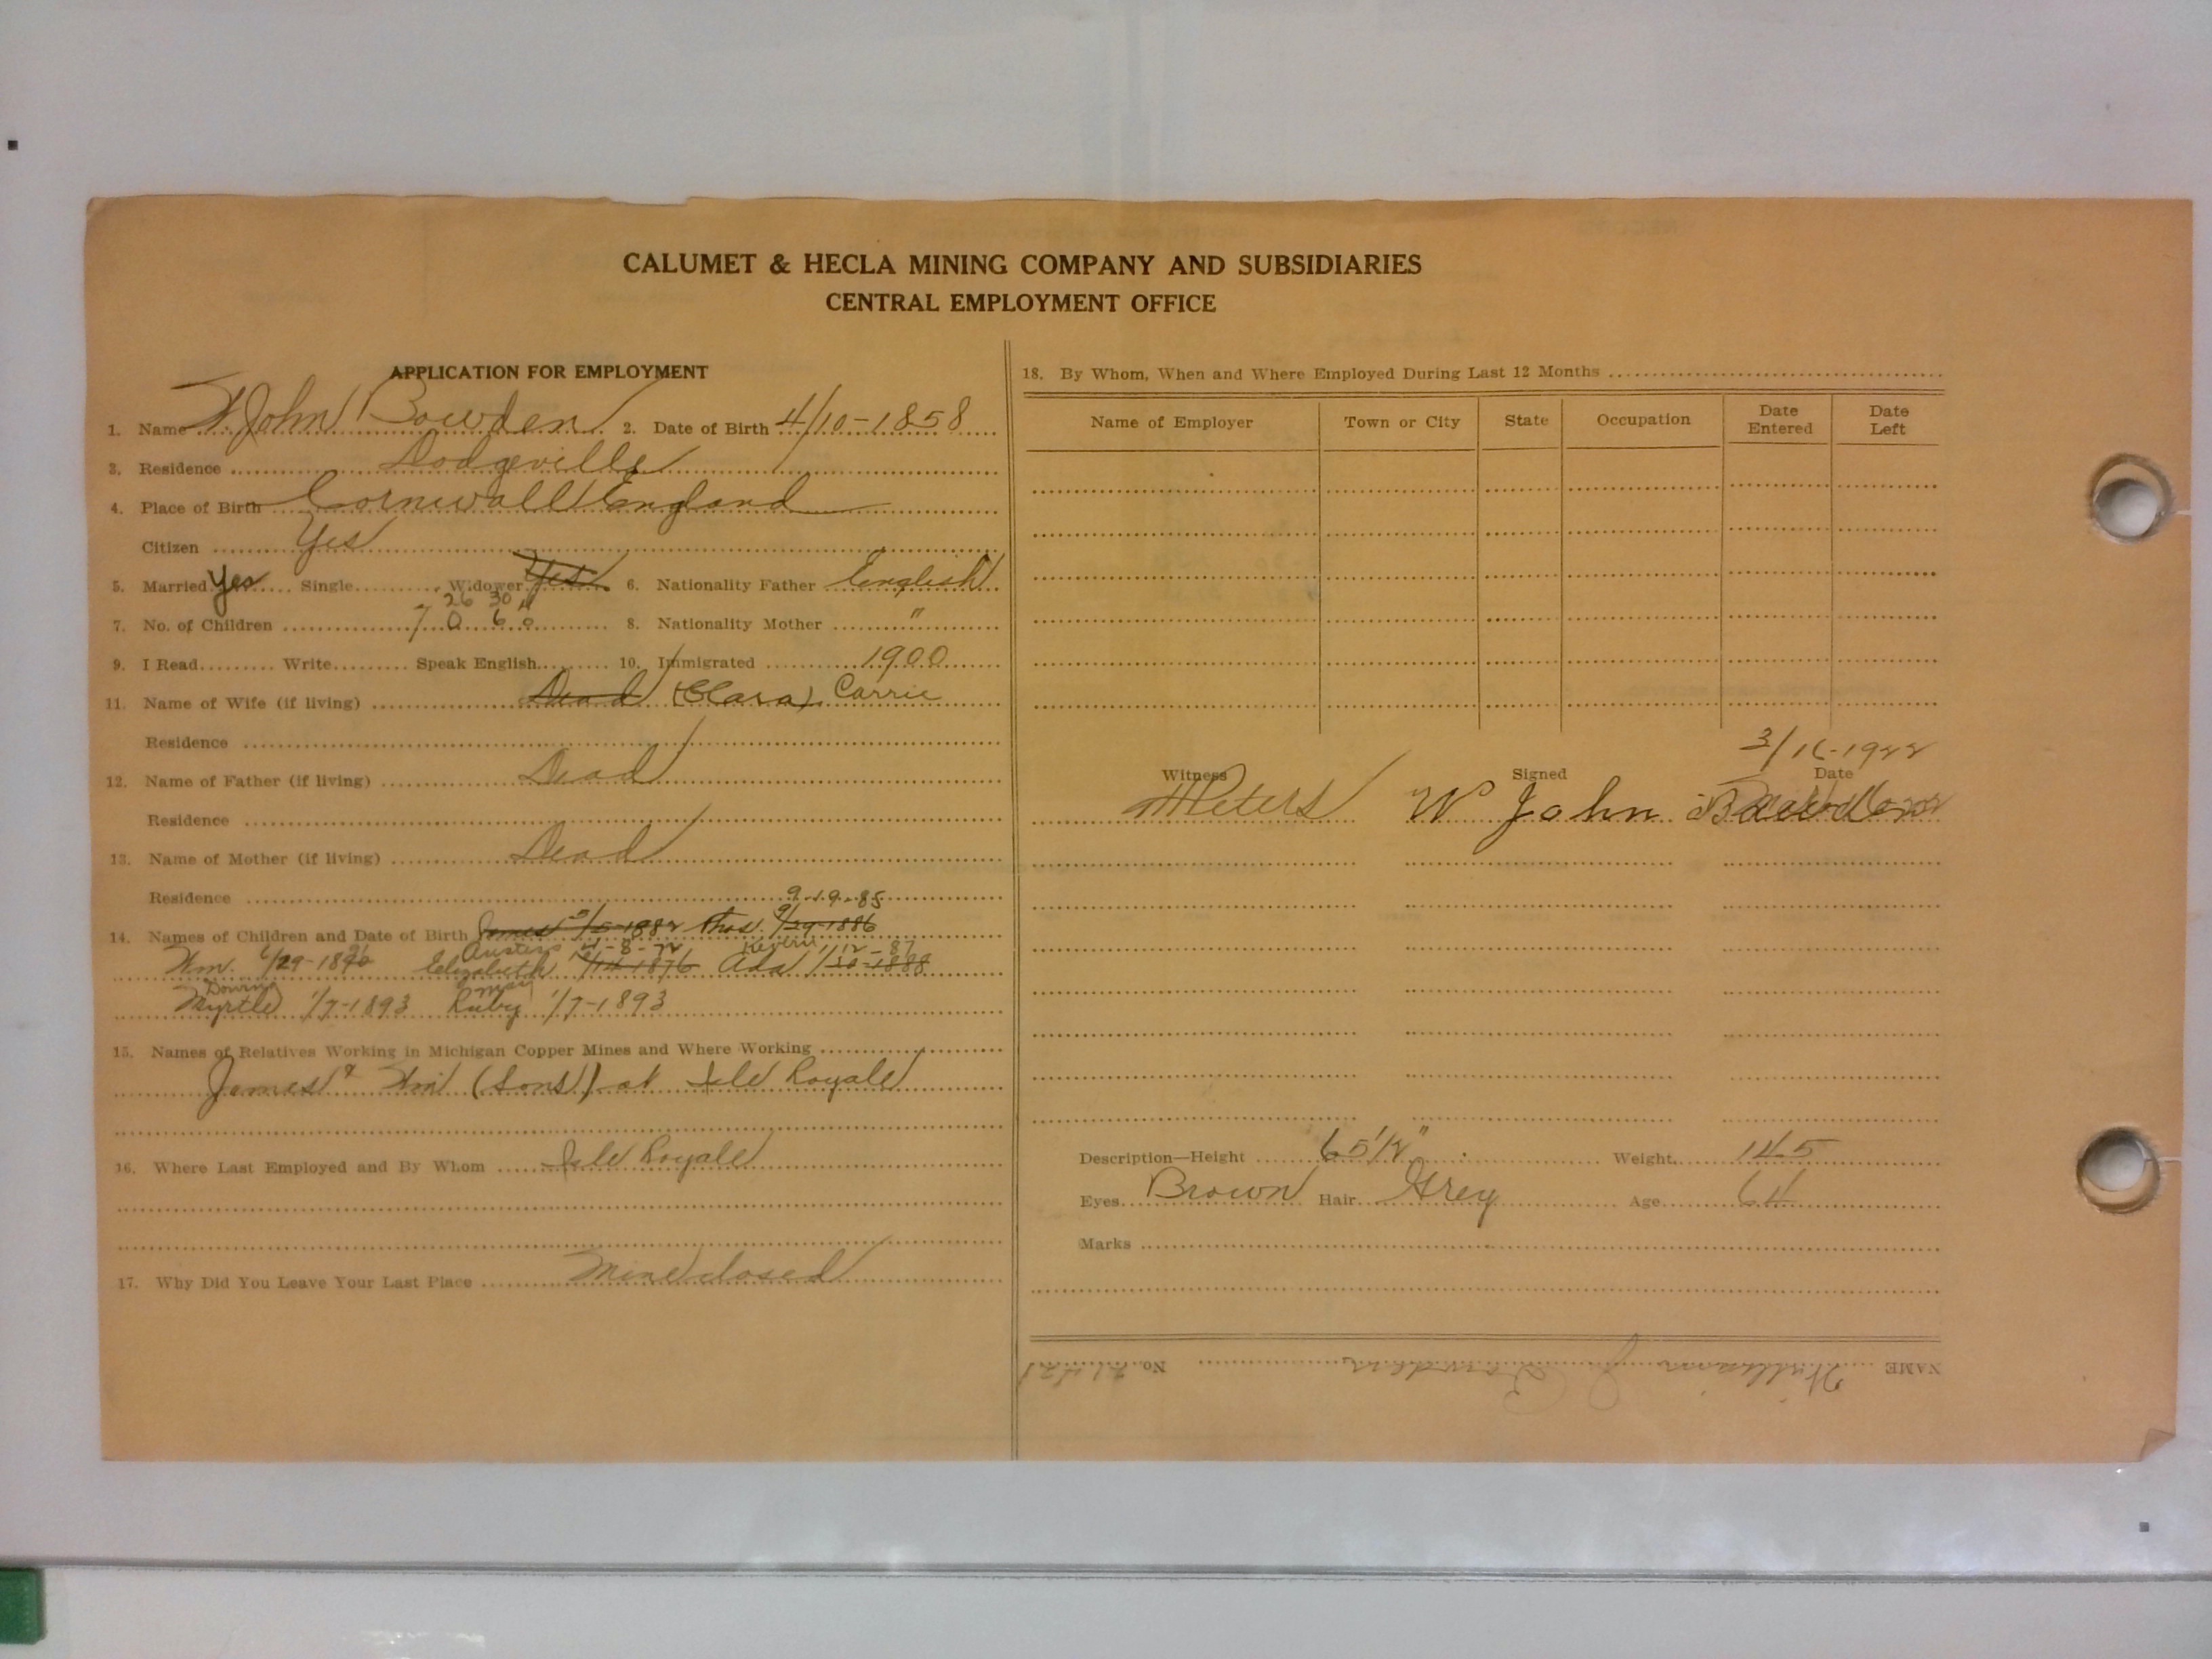 CALUMET & HECLA MINING COMPANY AND SUBSIDIARIES
CENTRAL EMPLOYMENT OFFICE
APPLICATION FOR EMPLOYMENT
1. Name W John Bowden 2. Date of Birth 4/10-1858
3. Residence Dodgeville
4. Place of Birth Cornwall England
Citizen Yes
5. Married Yes Single Widower Yes 6. Nationality Father English
26 30
7. No. of Children 7 0 6 0 8. Nationality Mother "
9. I Read Write Speak English 10. Immigrated 1900
11. Name of Wife (if living) Dead (Clara) Carrie
Residence
12. Name of Father (if living) Dead
Residence
13. Name of Mother (if living) Dead
Residence
9-19-85
14. Names of Children and Date of Birth James 5/5-1882 Thos. 9/29-1886
Austers 4-8-72 Kevern 12-87
Wm. 6/29-1890 Elizabeth 4/14-1876 Ada 1/20-1888
Downing May
Myrtle 1/7-1893 Ruby 1/7-1893
15. Names of Relatives Working in Michigan Copper Mines and Where Working
James & Wm (Sons) at Isle Royale
16. Where Last Employed and By Whom Isle Royale
17. Why Did You Leave Your Last Place Mine closed
18. By Whom, When and Where Employed During Last 12 Months
Name of Employer Town or City State Occupation Date Entered Date Left
3/16-1922
Witness Signed Date
Peters W John Bawden
Description—Height 65 1/2" Weight 145
Eyes Brown Hair Grey Age 64
Marks
NAME William J Bowden No.